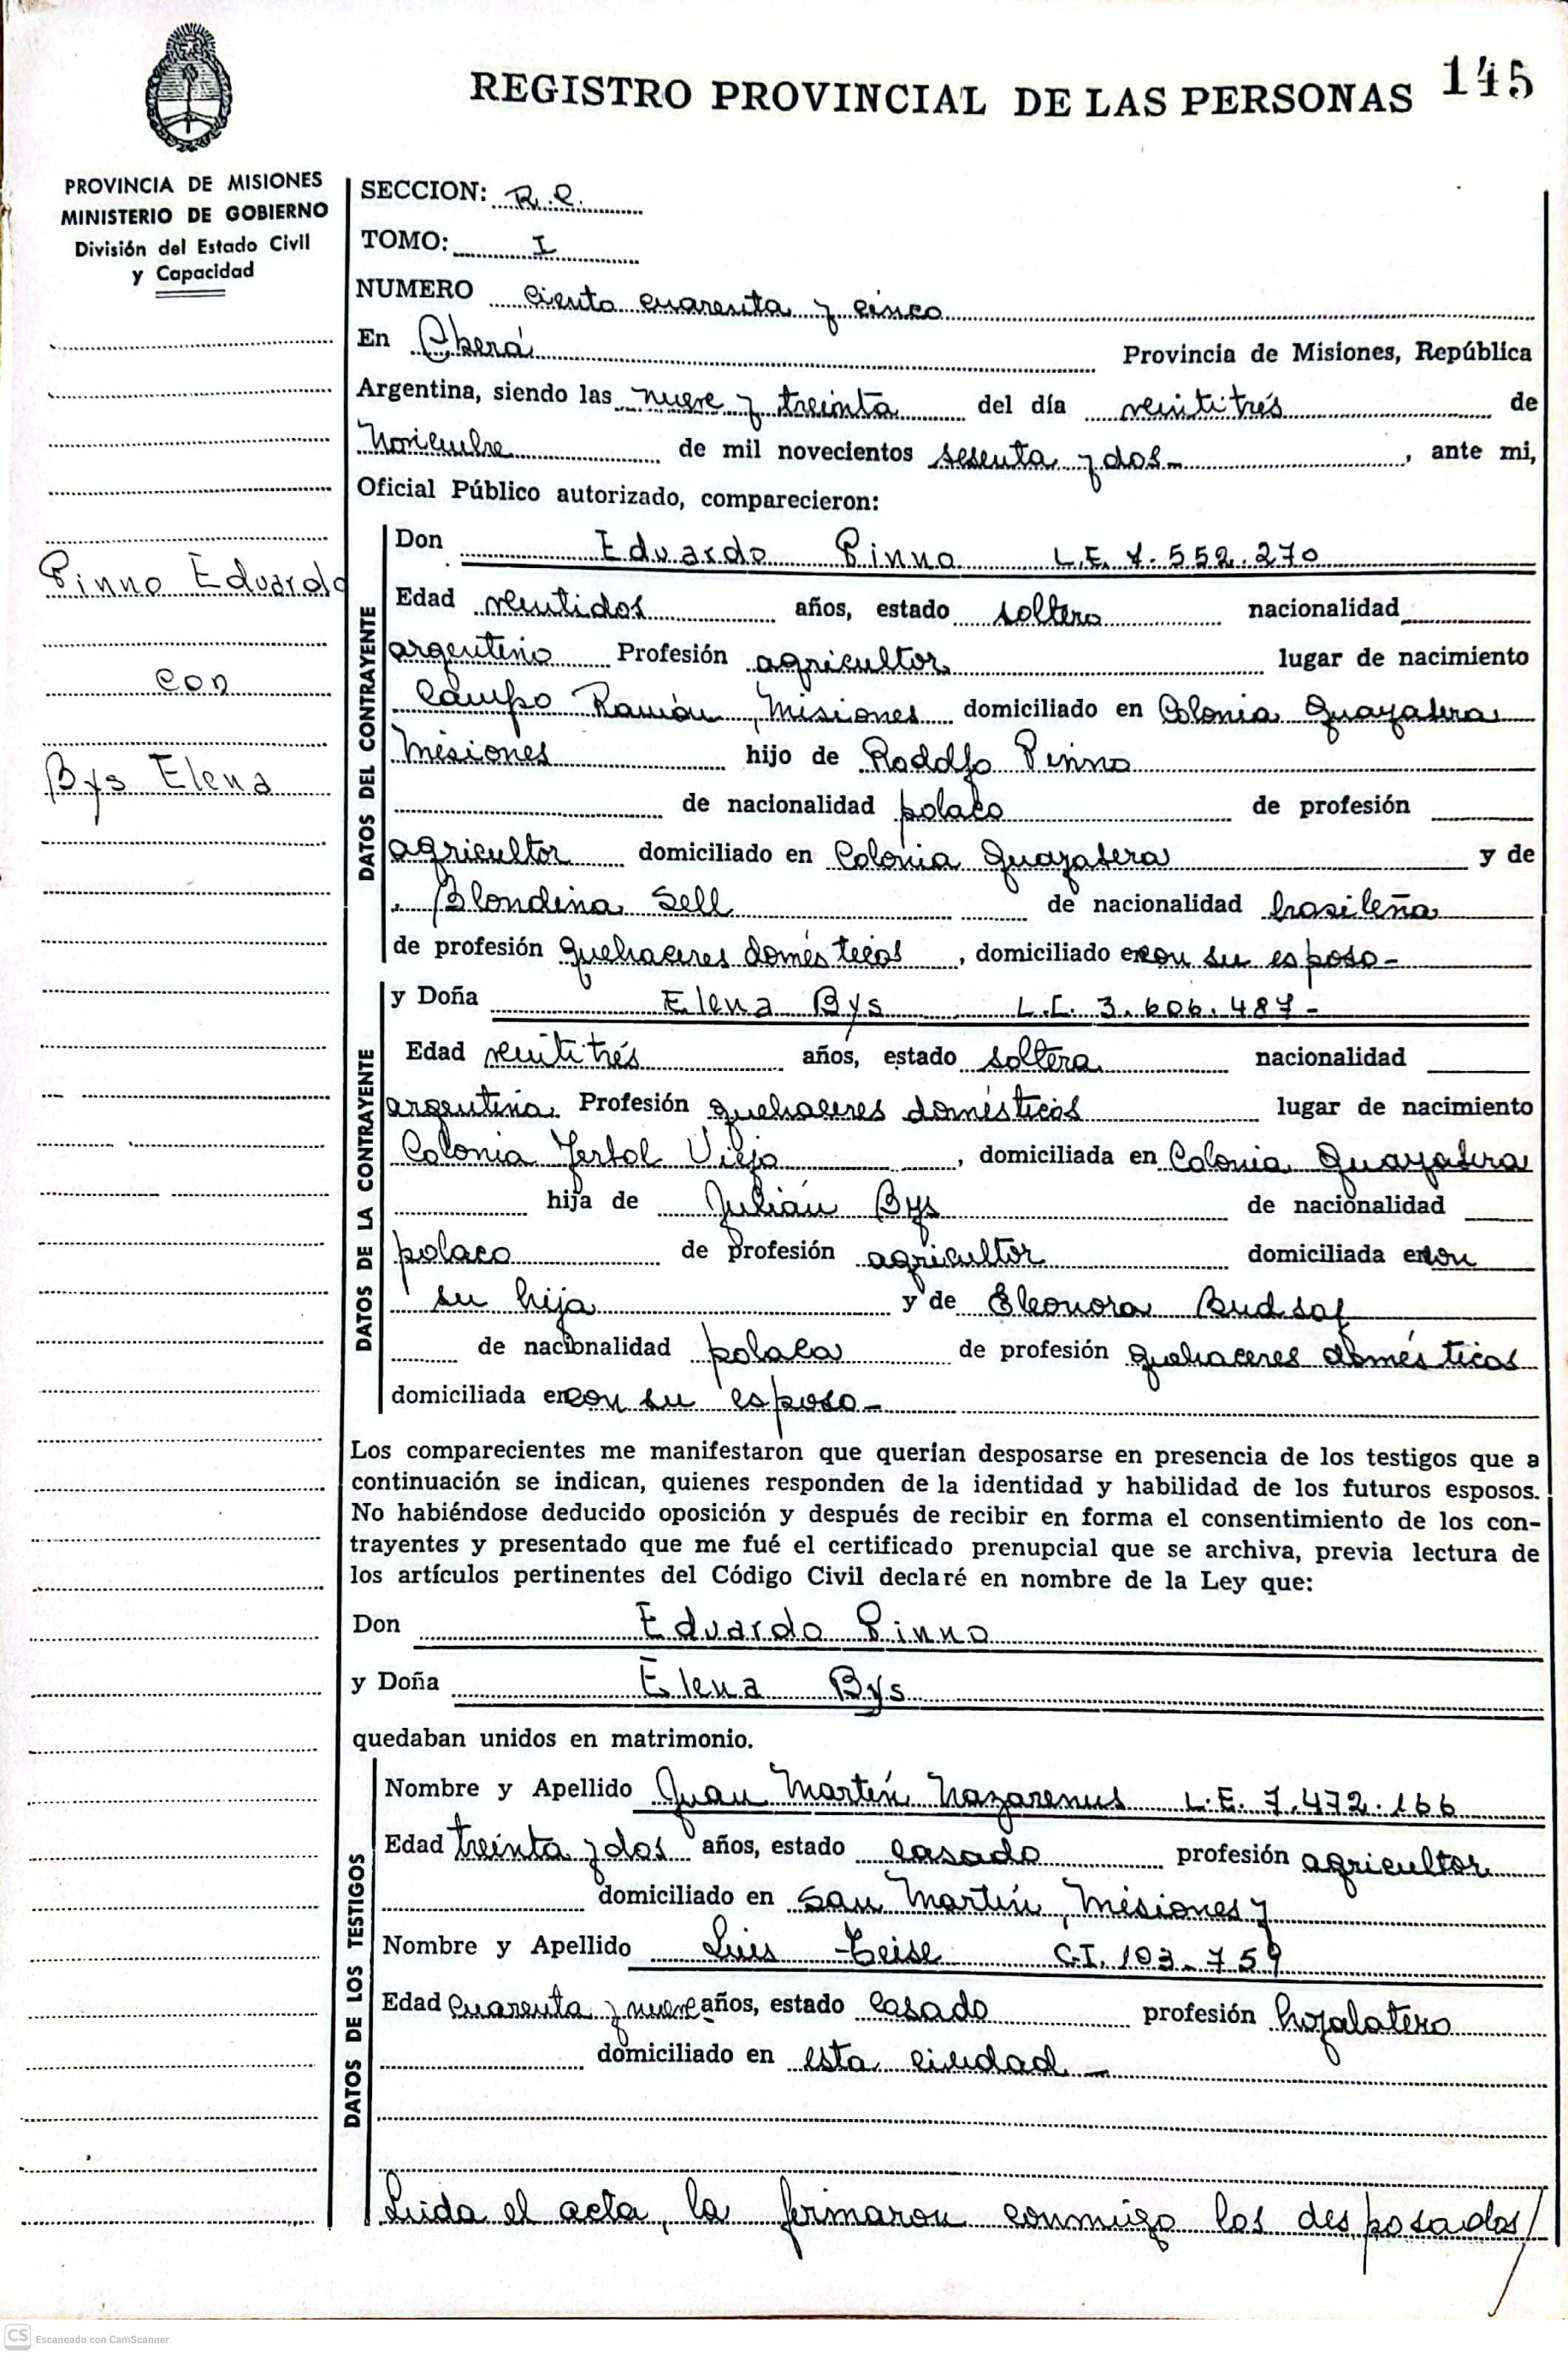 REGISTRO PROVINCIAL DE LAS PERSONAS 145
PROVINCIA DE MISIONES
MINISTERIO DE GOBIERNO
División del Estado Civil
y Capacidad
Pinno Eduardo
con
Bys Elena
SECCION: R.C.
TOMO: I
NUMERO ciento cuarenta y cinco
En Oberá Provincia de Misiones, República
Argentina, siendo las nueve y treinta del día veintitrés de
Noviembre de mil novecientos sesenta y dos- , ante mi,
Oficial Público autorizado, comparecieron:
DATOS DEL CONTRAYENTE
Don Eduardo Pinno L.E. 7.552.270
Edad veintidos años, estado soltero nacionalidad
argentino Profesión agricultor lugar de nacimiento
Campo Ramón, Misiones domiciliado en Colonia Guayabera
Misiones hijo de Rodolfo Pinno
de nacionalidad polaco de profesión
agricultor domiciliado en Colonia Guayabera y de
Blondina Sell de nacionalidad brasileña
de profesión quehaceres domésticos , domiciliado en con su esposo-
DATOS DE LA CONTRAYENTE
y Doña Elena Bys L.C. 3.606.487-
Edad veintitrés años, estado soltera nacionalidad
argentina. Profesión quehaceres domésticos lugar de nacimiento
Colonia Yerbal Viejo , domiciliada en Colonia Guayabera
hija de Julián Bys de nacionalidad
polaco de profesión agricultor domiciliada en con
su hija y de Eleonora
de nacionalidad polaca de profesión quehaceres domésticos
domiciliada en con su esposo-
Los comparecientes me manifestaron que querían desposarse en presencia de los testigos que a
continuación se indican, quienes responden de la identidad y habilidad de los futuros esposos.
No habiéndose deducido oposición y después de recibir en forma el consentimiento de los con-
trayentes y presentado que me fué el certificado prenupcial que se archiva, previa lectura de
los artículos pertinentes del Código Civil declaré en nombre de la Ley que:
Don Eduardo Pinno
y Doña Elena Bys
quedaban unidos en matrimonio.
DATOS DE LOS TESTIGOS
Nombre y Apellido Juan Martín Nazarenus L.E. 7.472.166
Edad treinta y dos años, estado casado profesión agricultor
domiciliado en San Martín, Misiones y
Nombre y Apellido Luis Teise C.I. 103.759
Edad cuarenta y nueve años, estado casado profesión hojalatero
domiciliado en esta ciudad-
Leida el acta, la firmaron conmigo los desposados/
CS Escaneado con CamScanner